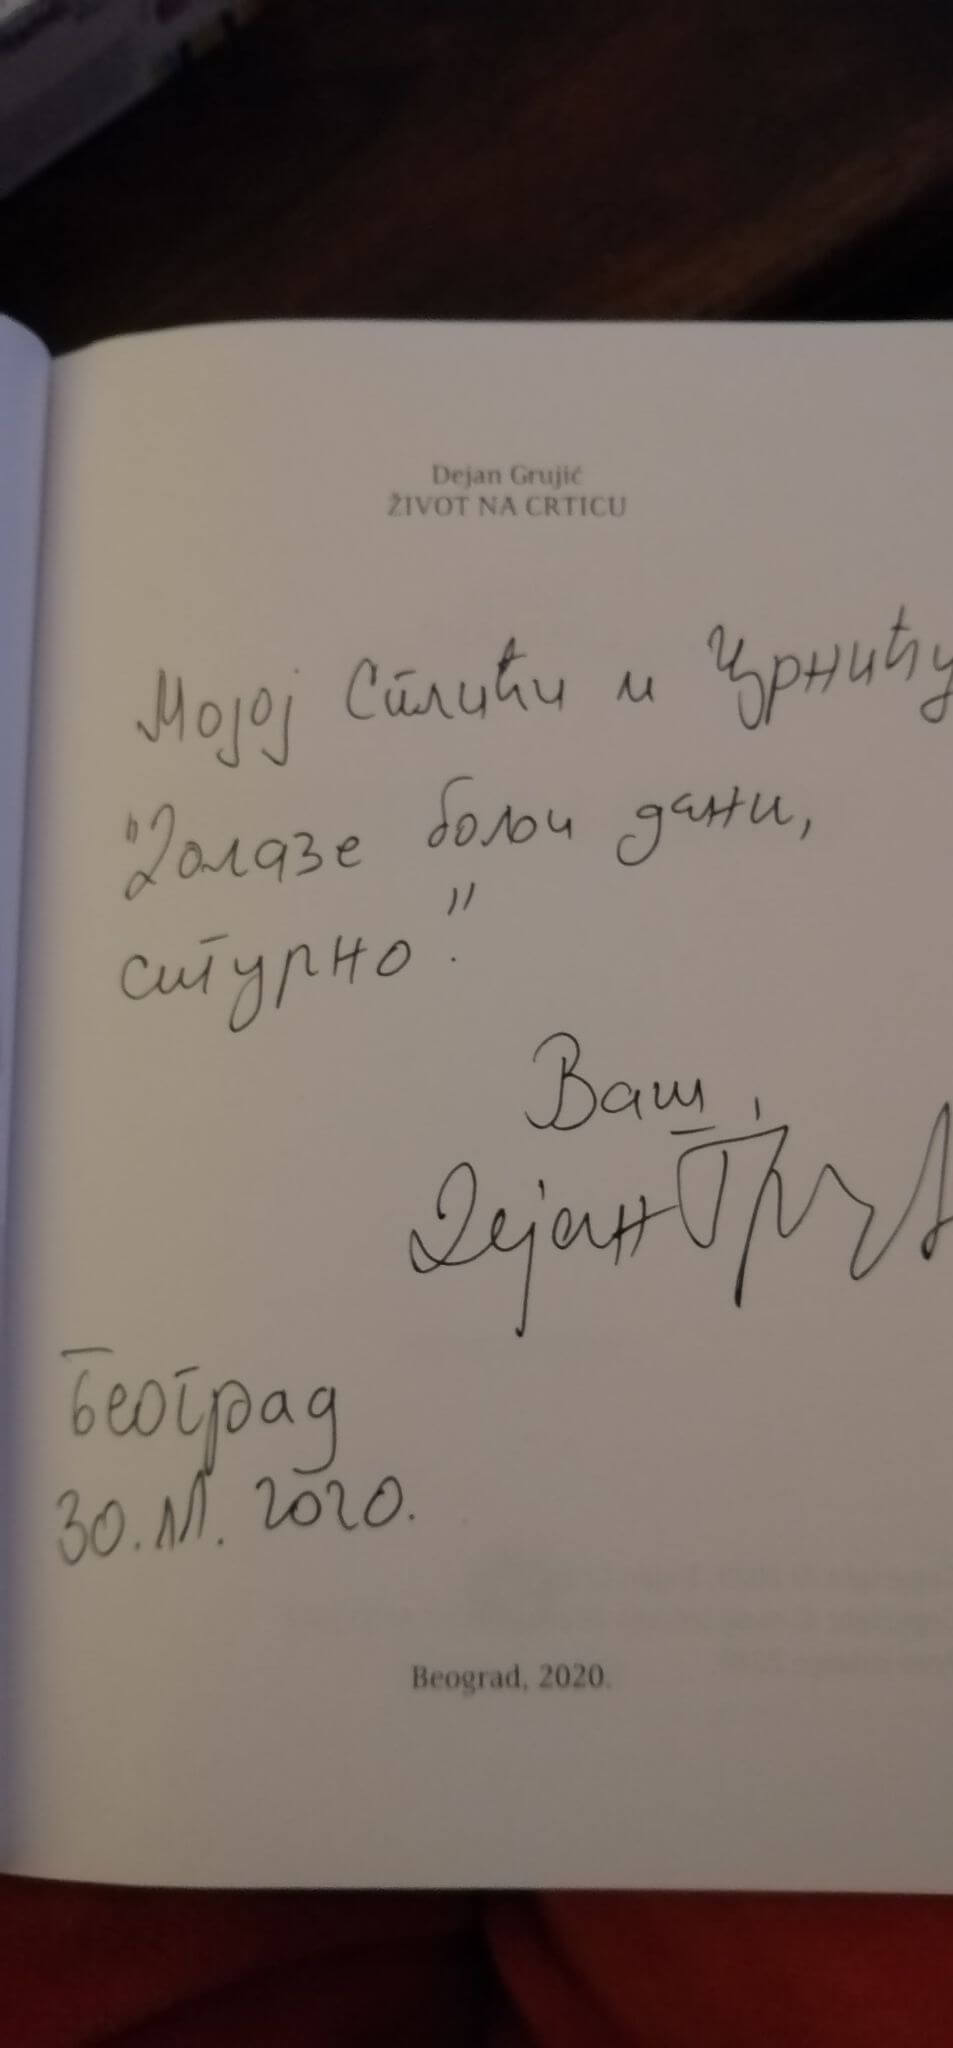 Dejan Grujić
ŽIVOT NA CRTICU
Мојој и Црнићу
"Долазе бољи дани,
сигурно".
Ваш,
Дејан
Београд
30.XI. 2020.
Beograd, 2020.